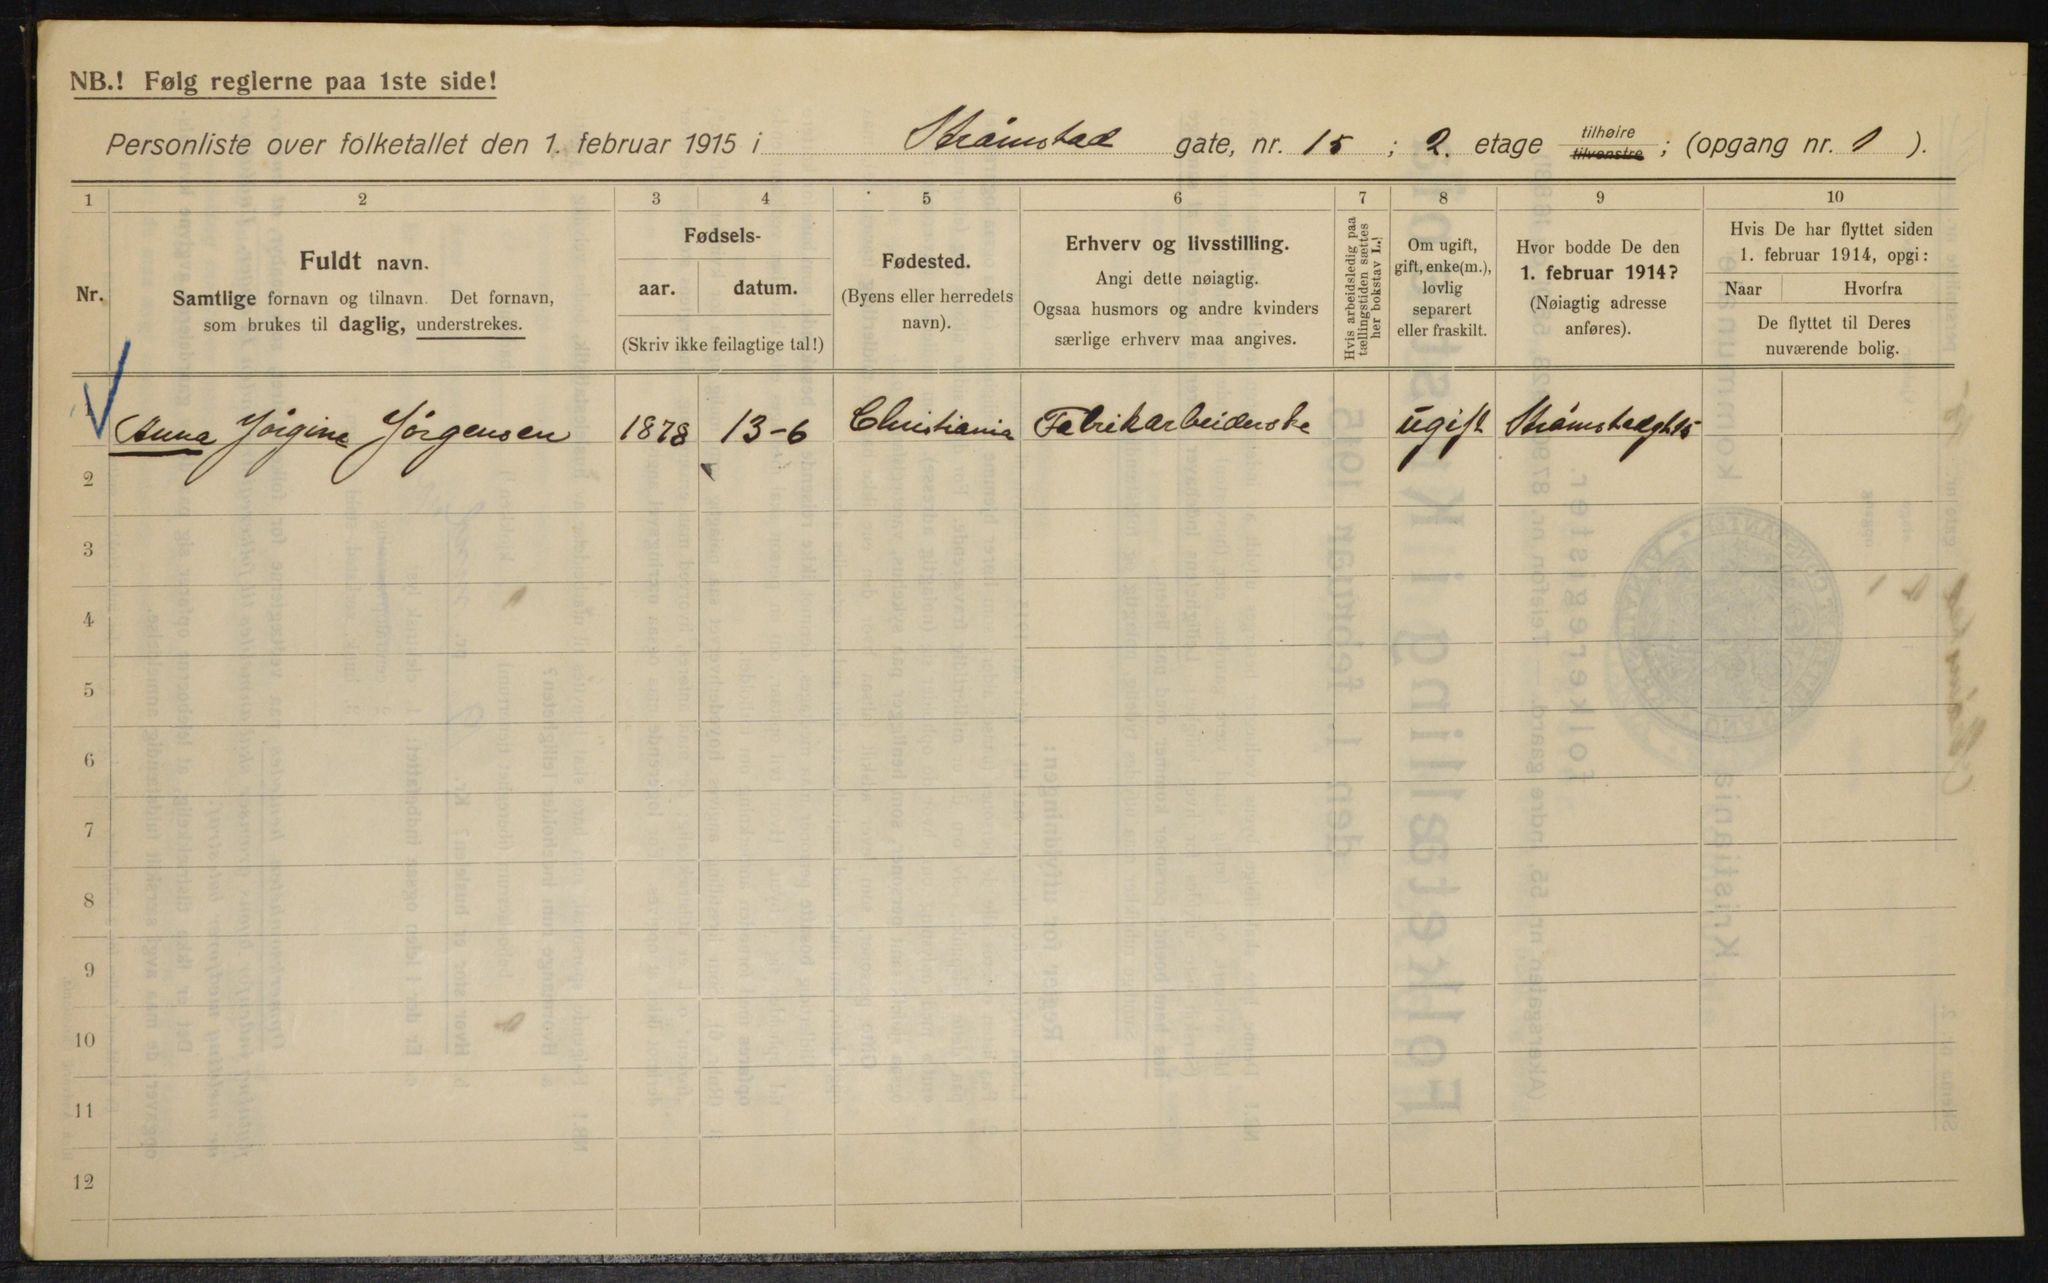 NB.! Følg reglerne paa 1ste side!
Personliste over folketallet den 1. februar 1915 i Strømstad gate, nr. 15 ; 2. etage tilhøire tilvenstre ; (opgang nr. 1 ).
1 2 3 4 5 6 7 8 9 10
Nr.
Fuldt navn.
Samtlige fornavn og tilnavn. Det fornavn,
som brukes til daglig, understrekes.
Fødsels-
aar. datum.
(Skriv ikke feilagtige tal!)
Fødested.
(Byens eller herredets
navn).
Erhverv og livsstilling.
Angi dette nøiagtig.
Ogsaa husmors og andre kvinders
særlige erhverv maa angives.
Hvis arbeidsledig paa
tællingstiden sættes
her bokstav L.!
Om ugift,
gift, enke(m.),
lovlig
separert
eller fraskilt.
Hvor bodde De den
1. februar 1914?
(Nøiagtig adresse
anføres).
Hvis De har flyttet siden
1. februar 1914, opgi:
Naar Hvorfra
De flyttet til Deres
nuværende bolig.
1 Anna Jørgine Jørgensen 1878 13-6 Christiania Fabrikarbeiderske ugift Strømstadgt 15
2
3
4
5
6
7
8
9
10
11
12